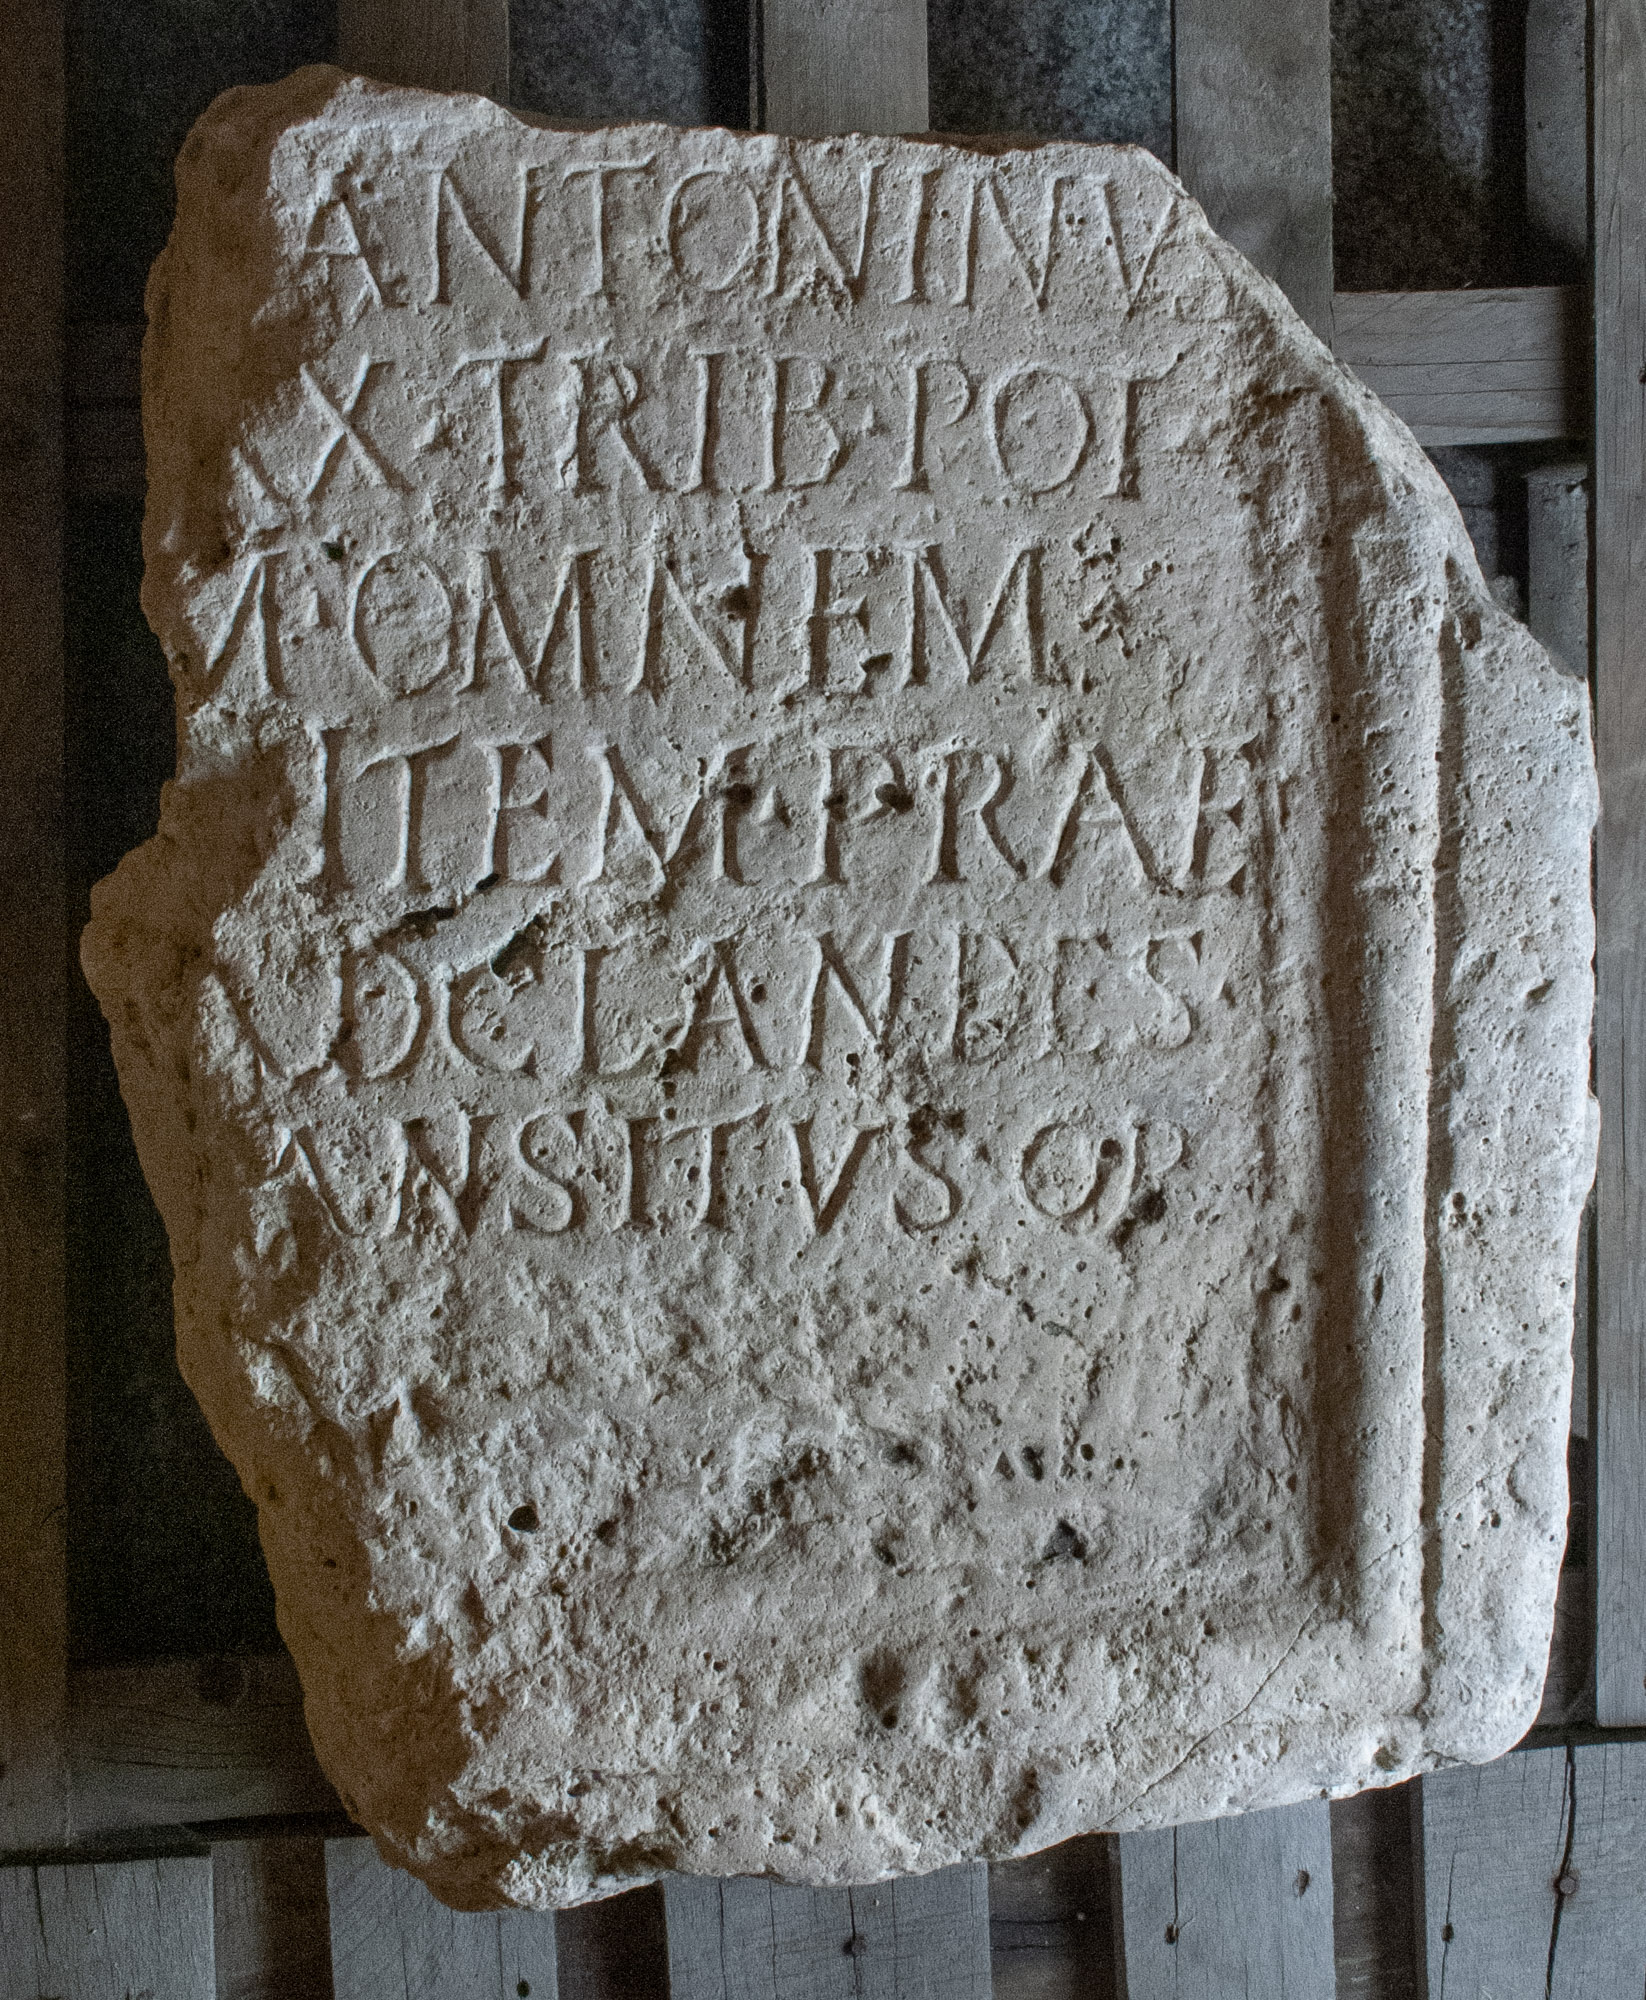 ANTONINV
X·TRIB·POT
M·OMNEM
ITEM·PRAE
ADCLANDES
NSITVS·OP